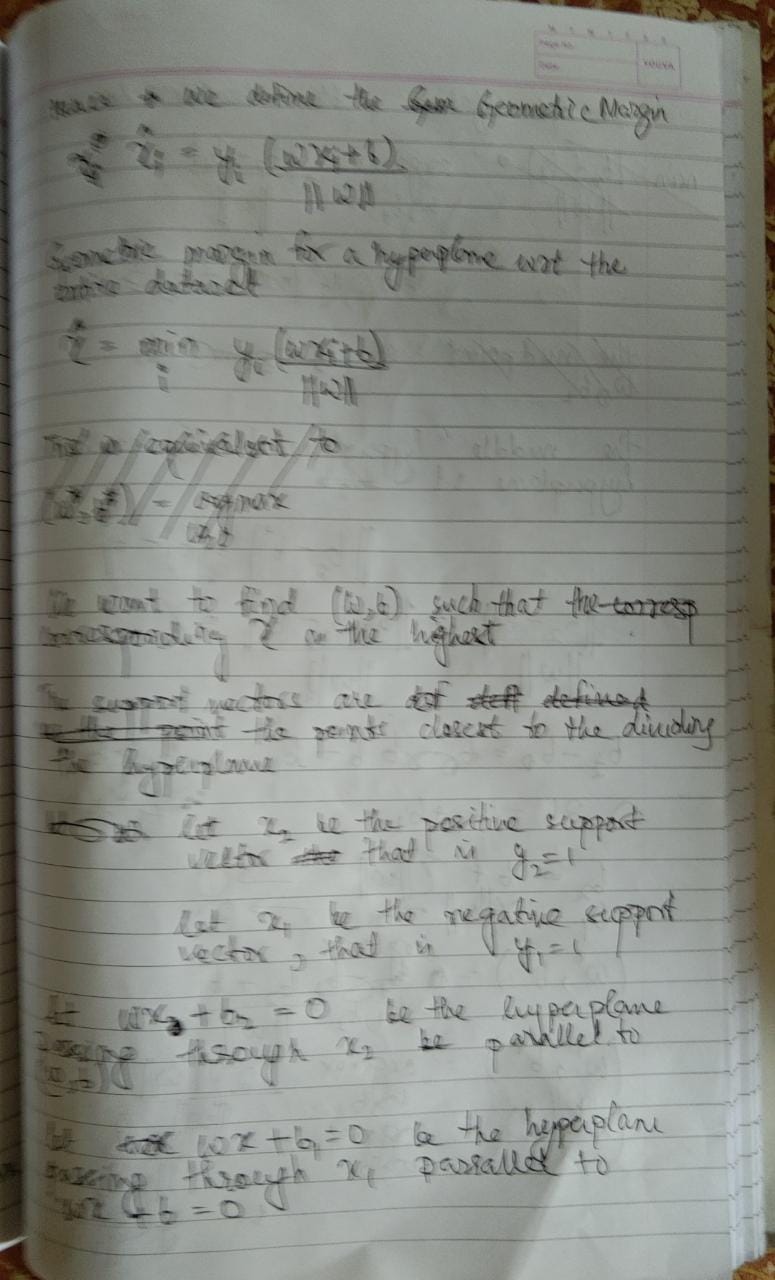 we define the Geometric Margin
γ̂ᵢ = yᵢ (wxᵢ+b) / ||w||
Geometric margin for a hyperplane wrt the
entire dataset
γ̂ = min i yᵢ (wxᵢ+b) / ||w||
This is equivalent to
(w*, b*) = argmax w,b
We want to find (w,b) such that the corresp
corresponding γ is the highest
The support vectors are defined
the point the points closest to the dividing
the hyperplane
let x₂ be the positive support
vector that is y₂=1
let x₁ be the negative support
vector, that is y₁=1
let wx₂+b₂ = 0 be the hyperplane
passing through x₂ be parallel to
(w,b)
let wx+b₁=0 be the hyperplane
passing through x₁ parallel to
wx+b=0